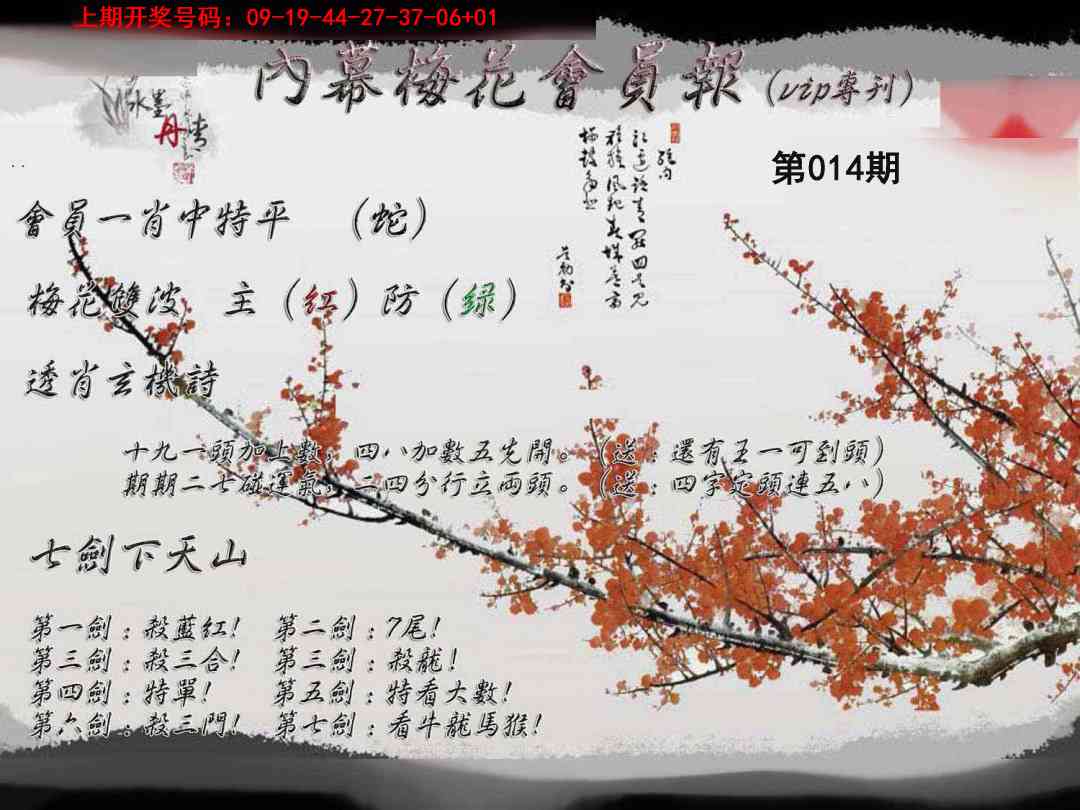 上期开奖号码：09-19-44-27-37-06+01
內幕梅花會員報（vip專刊）
水墨
丹青
第014期
會員一肖中特平 （蛇）
梅花雙波 主（红）防（绿）
透肖玄機詩
十九一頭加上數，四八加數五先開。（送：還有王一可到頭）
期期二七碰運氣，二四分行立兩頭。（送：四字定頭連五八）
七劍下天山
第一劍：殺藍紅! 第二劍：7尾!
第三劍：殺三合! 第三劍：殺龍!
第四劍：特單! 第五劍：特看大數!
第六劍：殺三門! 第七劍：看牛龍馬猴!